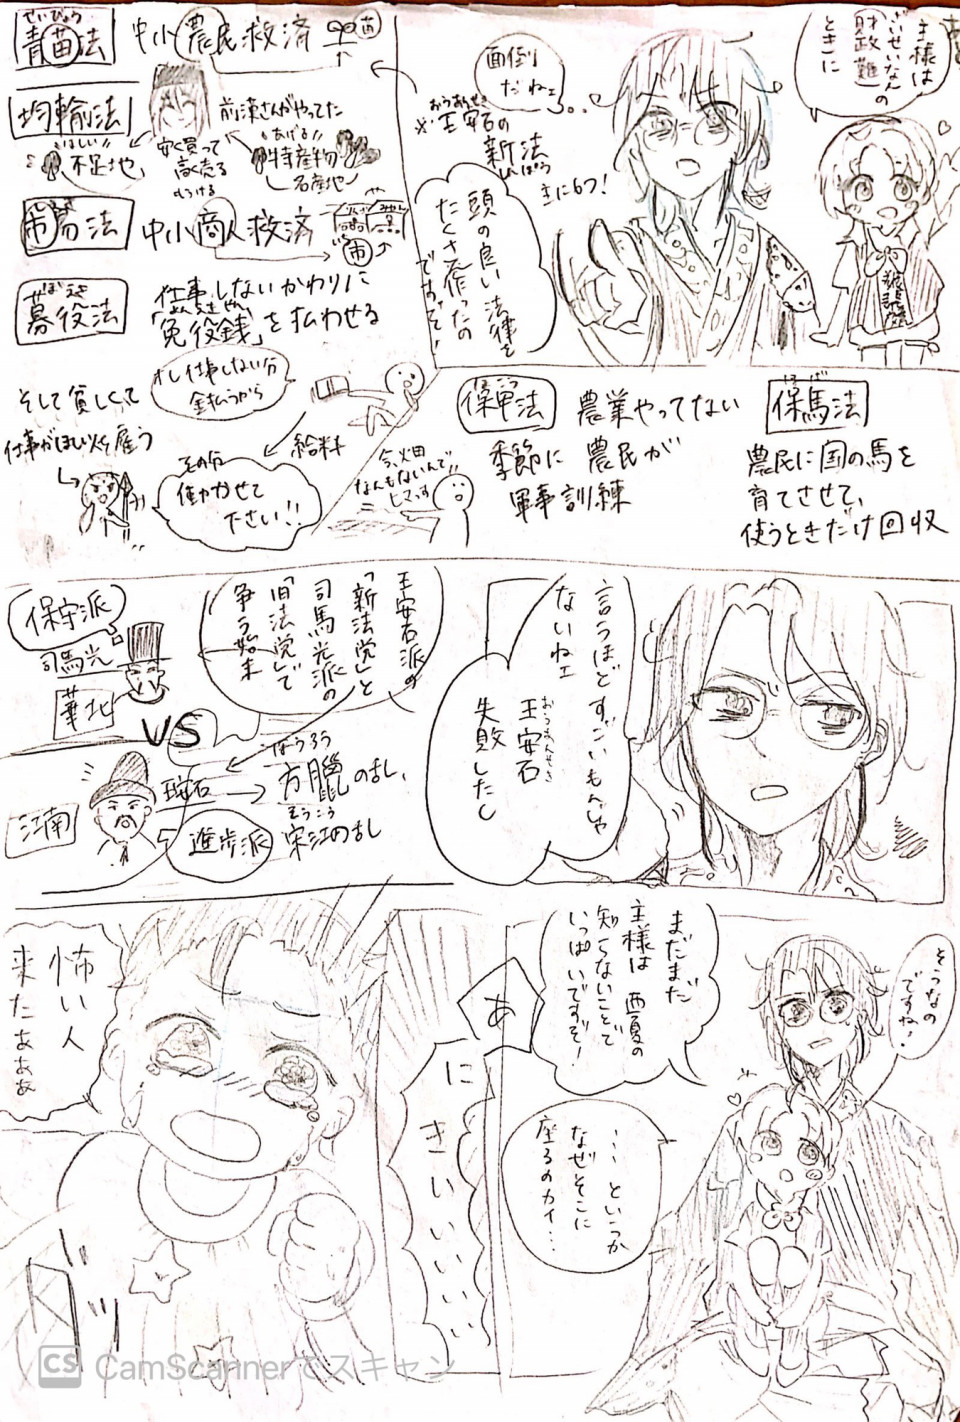 主様は
財政難の
ざいせいなん
ときに
頭の良い法律を
たくさん作ったの
ですって!
面倒
だねェ。。
おうあんせき
※王安石の
新法
しんぽう
きに6つ!
せいびょう
青苗法
中小農民救済
苗
均輸法
前漢さんがやってた
安く買って
高く売る
もうける
ほしい!!
不足地
あげる!!
特産物
名産地
市易法
中小商人救済
市
ぼえき
募役法
仕事しないかわりに
「免役銭」を払わせる
オレ仕事しない分
金払うから
そして貧しくて
仕事がほしい人を雇う
給料
その分
働かせて
下さい!!
今、畑
なんもないんで!!
ヒマっす
ほこう
保甲法
農業やってない
季節に農民が
軍事訓練
ほば
保馬法
農民に国の馬を
育てさせて、
使うときだけ回収
言うほどすごいもんじゃ
ないねェ
おうあんせき
王安石
失敗したし
王安石派の
「新法党」と
司馬光派の
「旧法党」で
争う始末
保守派
司馬光
華北
VS
江南
王安石
進歩派
ほうろう
方臘の乱、
そうこう
宋江の乱
そうなの
ですね!
まだまだ
主様は西夏の
知らないことで
いっぱいですぞ!
・・・というか
なぜそこに
座るのカイ・・・
あ
にきいいいい
怖い人
来たぁぁぁ
ドッ
CS CamScannerでスキャン